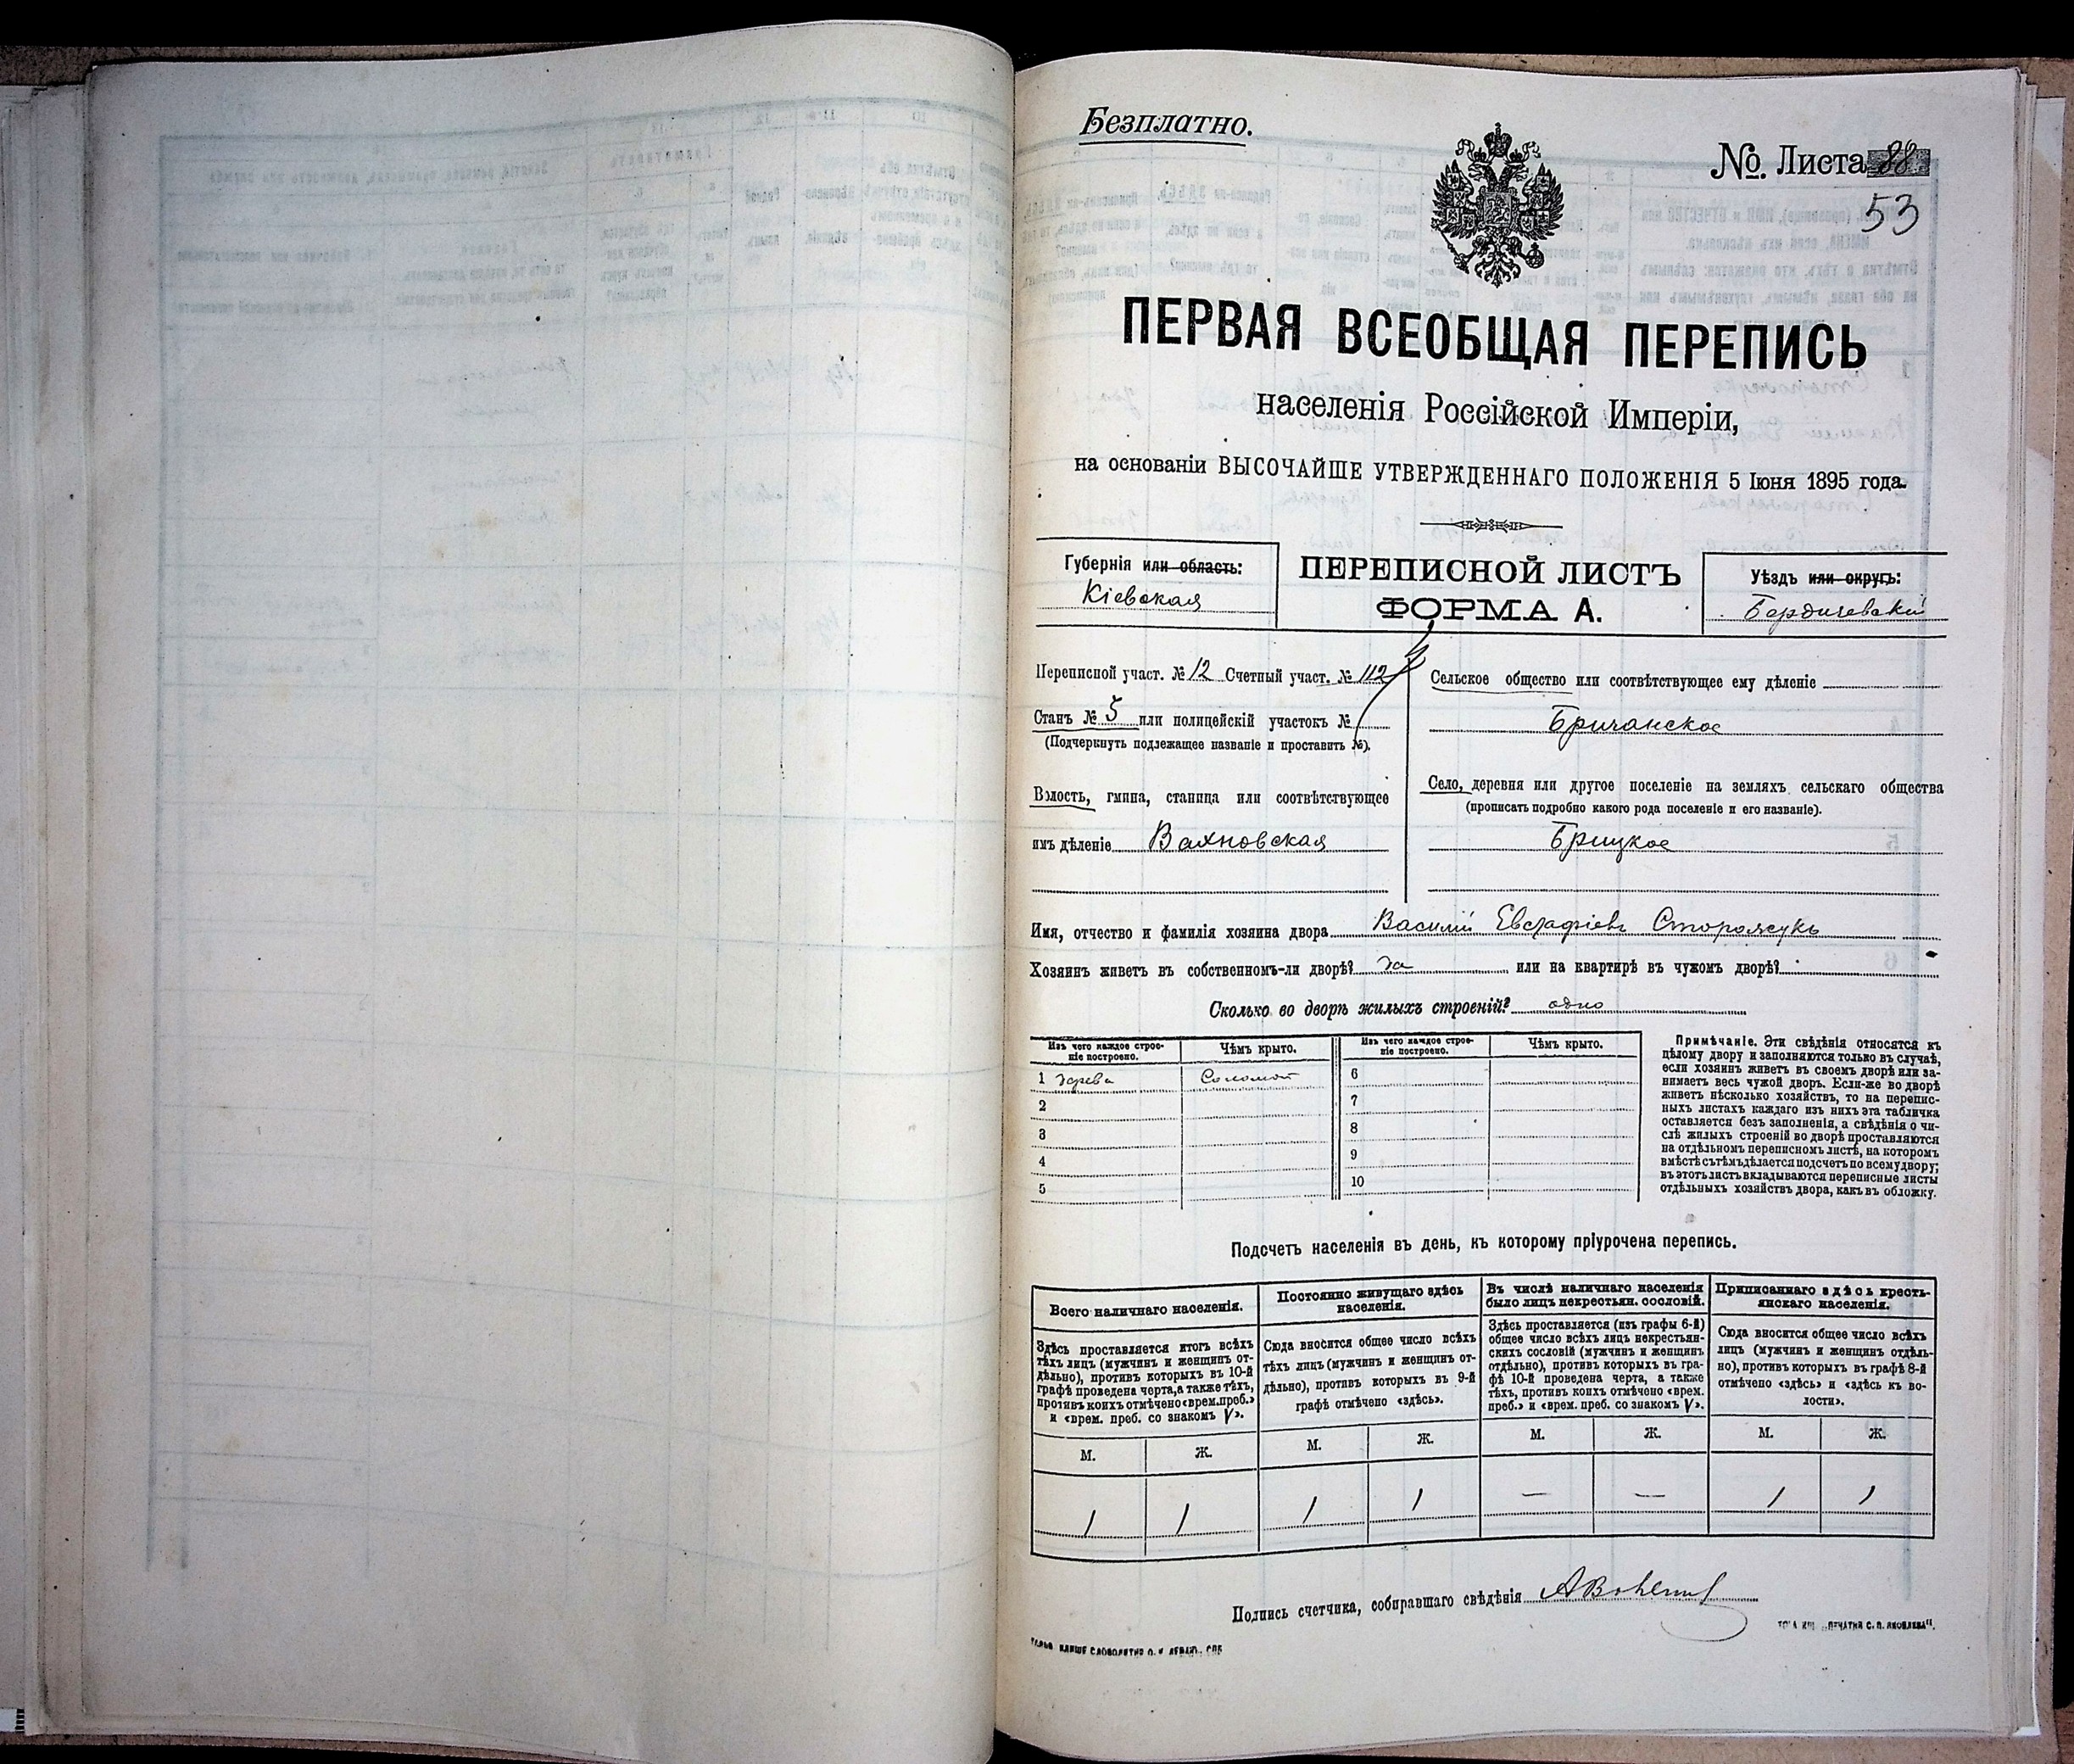 Безплатно.
№. Листа 88
53
ПЕРВАЯ ВСЕОБЩАЯ ПЕРЕПИСЬ
населенія Россійской Имперіи,
на основаніи ВЫСОЧАЙШЕ УТВЕРЖДЕННАГО ПОЛОЖЕНІЯ 5 Іюня 1895 года.
Губернія или область:
Кіевская
ПЕРЕПИСНОЙ ЛИСТЪ
ФОРМА А.
Уѣздъ или округъ:
Бердичевскій
Переписной участ. № 12 Счетный участ. № 112
Станъ № 5 или полицейскій участокъ №
(Подчеркнуть подлежащее названіе и проставить №).
Волость, гмина, станица или соотвѣтствующее
имъ дѣленіе Вахновская
Сельское общество или соотвѣтствующее ему дѣленіе
Бричанское
Село, деревня или другое поселеніе на земляхъ сельскаго общества
(прописать подробно какого рода поселеніе и его названіе).
Брицкое
Имя, отчество и фамилія хозяина двора Василій Сторожукъ
Хозяинъ живетъ въ собственномъ-ли дворѣ? да или на квартирѣ въ чужомъ дворѣ?
Сколько во дворѣ жилыхъ строеній? одно
Изъ чего каждое строе-
ніе построено.
Чѣмъ крыто.
Изъ чего каждое строе-
ніе построено.
Чѣмъ крыто.
1 дерева Соломой 6
2 7
3 8
4 9
5 10
Примѣчаніе. Эти свѣдѣнія относятся къ
цѣлому двору и заполняются только въ случаѣ,
если хозяинъ живетъ въ своемъ дворѣ или за-
нимаетъ весь чужой дворъ. Если-же во дворѣ
живетъ нѣсколько хозяйствъ, то на перепис-
ныхъ листахъ каждаго изъ нихъ эта табличка
оставляется безъ заполненія, а свѣдѣнія о чи-
слѣ жилыхъ строеній во дворѣ проставляются
на отдѣльномъ переписномъ листѣ, на которомъ
вмѣстѣ съ тѣмъ дѣлается подсчетъ по всему двору;
въ этотъ листъ вкладываются переписные листы
отдѣльныхъ хозяйствъ двора, какъ въ обложку.
Подсчетъ населенія въ день, къ которому пріурочена перепись.
Всего наличнаго населенія.
Постоянно живущаго здѣсь
населенія.
Въ числѣ наличнаго населенія
было лицъ некрестьян. сословій.
Приписаннаго здѣсь кресть-
янскаго населенія.
Здѣсь проставляется итогъ всѣхъ
тѣхъ лицъ (мужчинъ и женщинъ от-
дѣльно), противъ которыхъ въ 10-й
графѣ проведена черта, а также тѣхъ,
противъ коихъ отмѣчено «врем. преб.»
и «врем. преб. со знакомъ V».
Сюда вносится общее число всѣхъ
тѣхъ лицъ (мужчинъ и женщинъ от-
дѣльно), противъ которыхъ въ 9-й
графѣ отмѣчено «здѣсь».
Здѣсь проставляется (изъ графы 6-й)
общее число всѣхъ лицъ некрестьян-
скихъ сословій (мужчинъ и женщинъ
отдѣльно), противъ которыхъ въ гра-
фѣ 10-й проведена черта, а также
тѣхъ, противъ коихъ отмѣчено «врем.
преб.» и «врем. преб. со знакомъ V».
Сюда вносится общее число всѣхъ
лицъ (мужчинъ и женщинъ отдѣль-
но), противъ которыхъ въ графѣ 8-й
отмѣчено «здѣсь» и «здѣсь къ во-
лости».
М. Ж. М. Ж. М. Ж. М. Ж.
1 1 1 1 — — 1 1
Подпись счетчика, собиравшаго свѣдѣнія